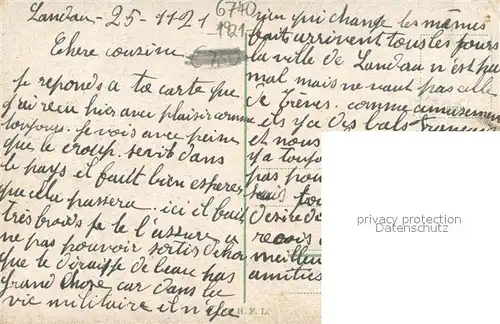 Landau - 25-1121
6740
1921
Chere cousine
Je reponds a ta carte que
j'ai recu hier avec plaisir comme
toujours. Je vois avec peine
que le croup. sevit dans
le pays il fault bien esperer
que ella passera. ici il fait
tres froids je te l'assure a
ne pas pouvoir sortis dehor
que te dirais de beau pas
grand chose car dans la
vie militaire il n'y a
rien qui change les mêmes
faits arrivent tous les jours
la ville de Landau n'est pas
mal mais ne vaut pas celle
de Trèves. comme amusement
ils y a des bals français
et nous
y a toujo
pas pou
suis tou
desire de
recois
meilleur
amitiés
H. F. L.
privacy protection
www.oldthing.net